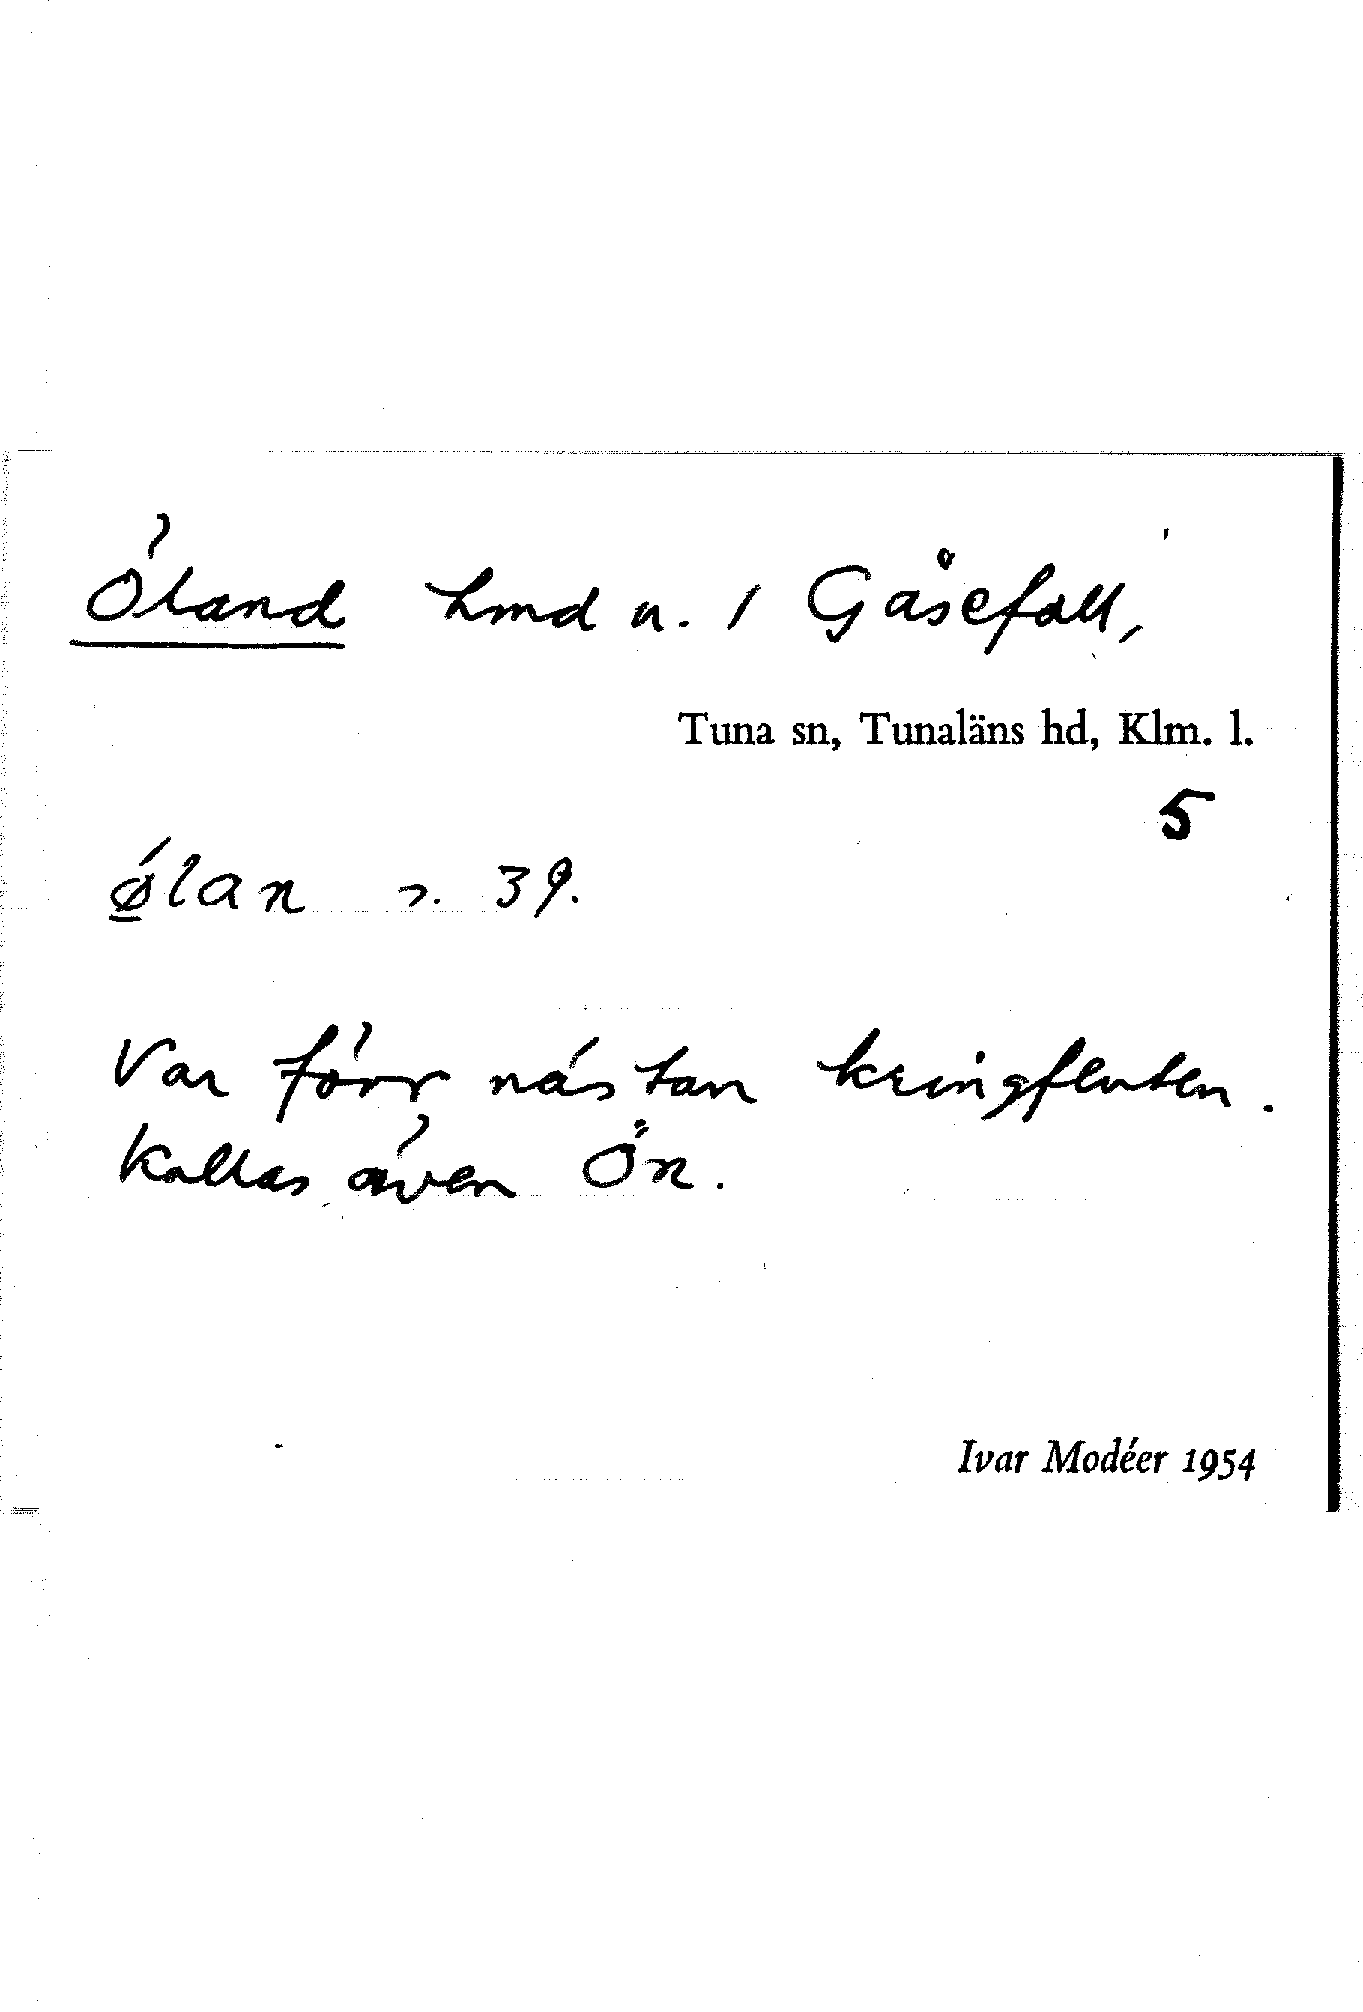 Öland hmd u. 1 Gåsefall,
Tuna sn, Tunaläns hd, Klm. l.
5
ǿlan 39.
Var förr nästan kringfluten.
Kallas även Ön.
Ivar Modéer 1954